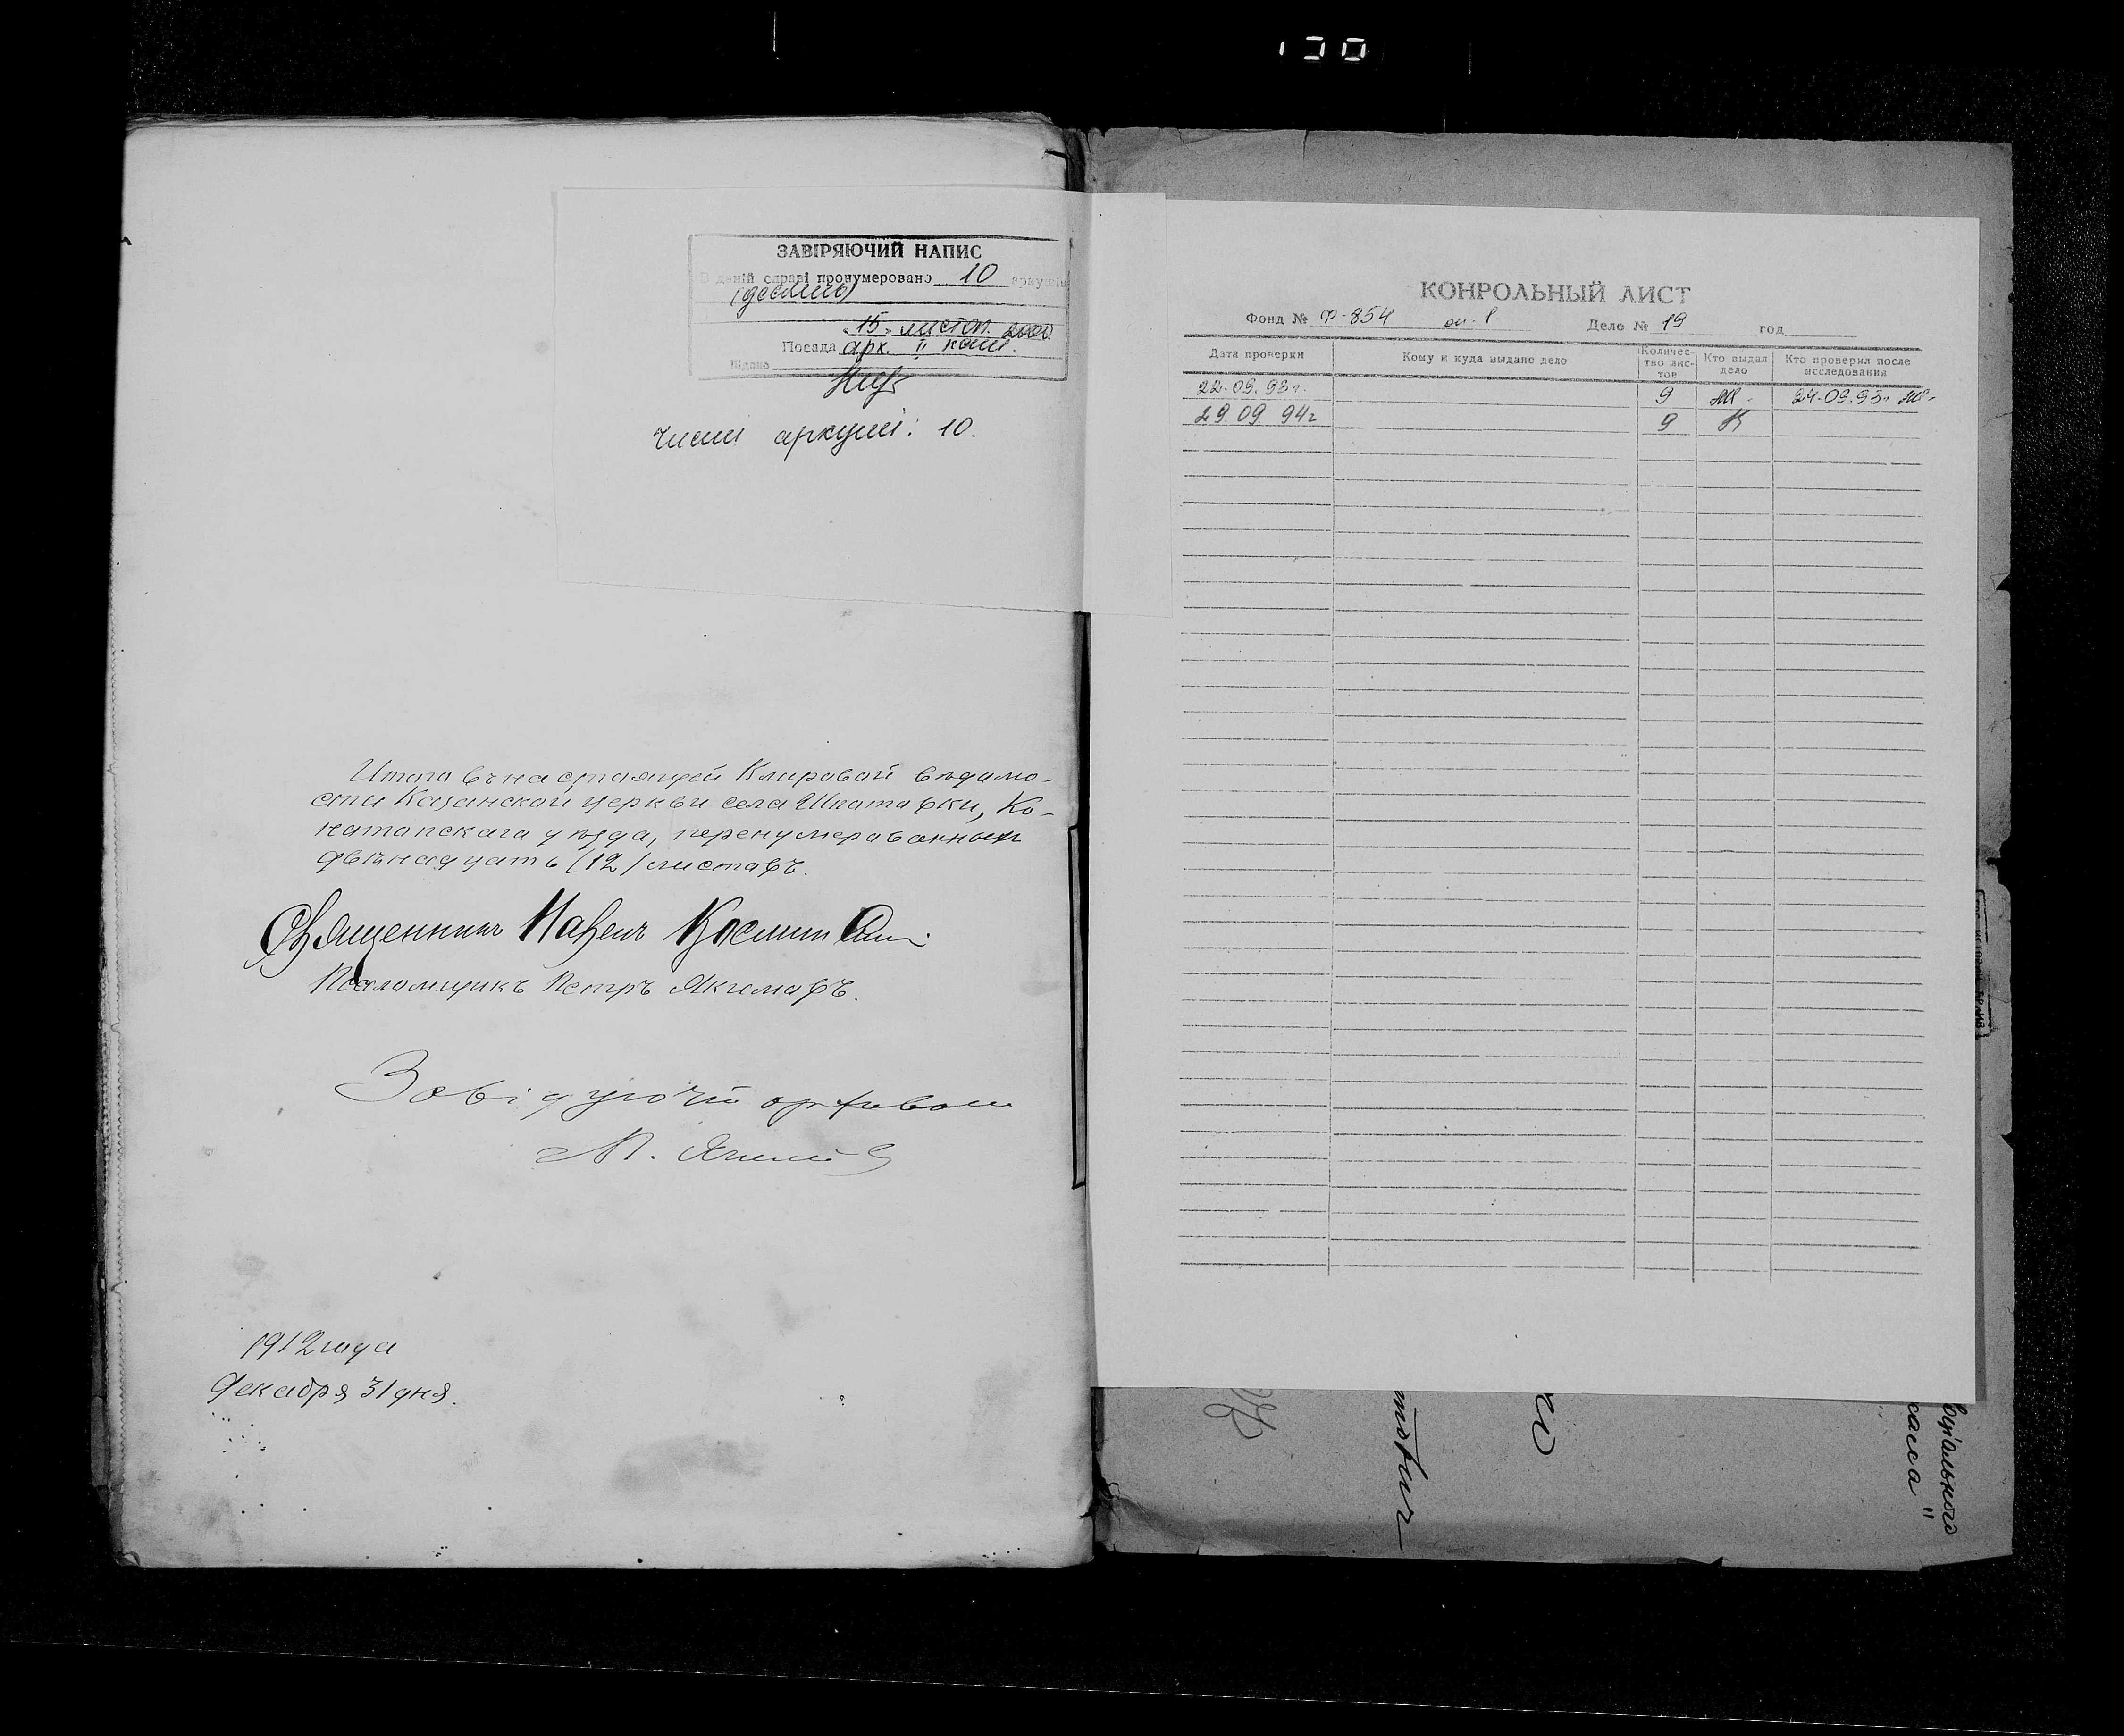 ЗАВІРЯЮЧИЙ НАПИС
В даній справі пронумеровано 10 аркушів
(десять)
"15" листоп. 2000
Посада арк. II кат.
Підпис
чисти аркуші: 10.
Итого въ настоящей Клировой ведомо-
сти Казанской церкви села Шпотовки, Ко-
нотопскаго уезда, перенумерованныхъ
двенадцать (12) листовъ.
Священникъ Павелъ
Псаломщикъ Петръ Якимовъ.
Завідуючий архівом
1912 года
Декабря 31 дня.
КОНРОЛЬНЫЙ ЛИСТ
Фонд № Ф-854 оп. 1 Дело № 19 год
Дата проверки Кому и куда выдано дело Количес-тво лис-тов Кто выдал дело Кто проверил после исследования
22.09.93г. 9 24.09.93г.
29.09 94г 9 К
вціального
касса"